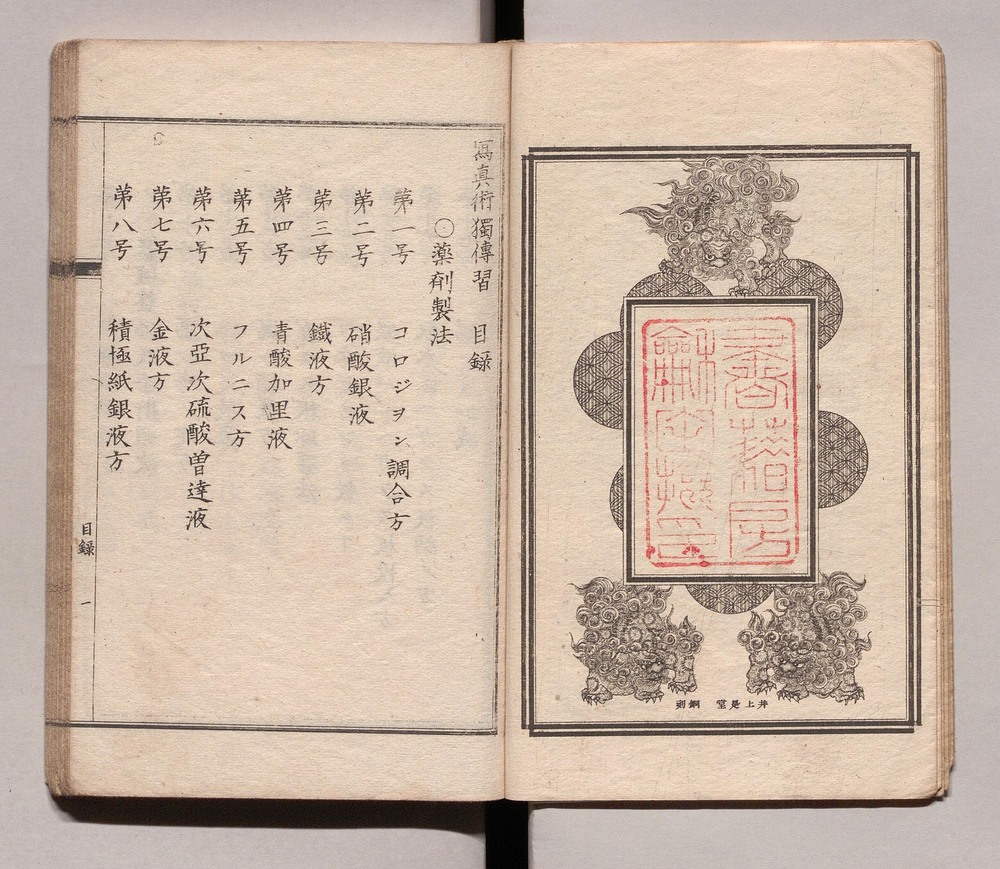 井上是堂 銅刻
寫真術獨傳習 目録
〇薬剤製法
苐一号 コロジヲン調合方
苐二号 硝酸銀液
苐三号 鐵液方
苐四号 青酸加里液
苐五号 フルニス方
苐六号 次亞次硫酸曽達液
苐七号 金液方
苐八号 積極紙銀液方
目録 一